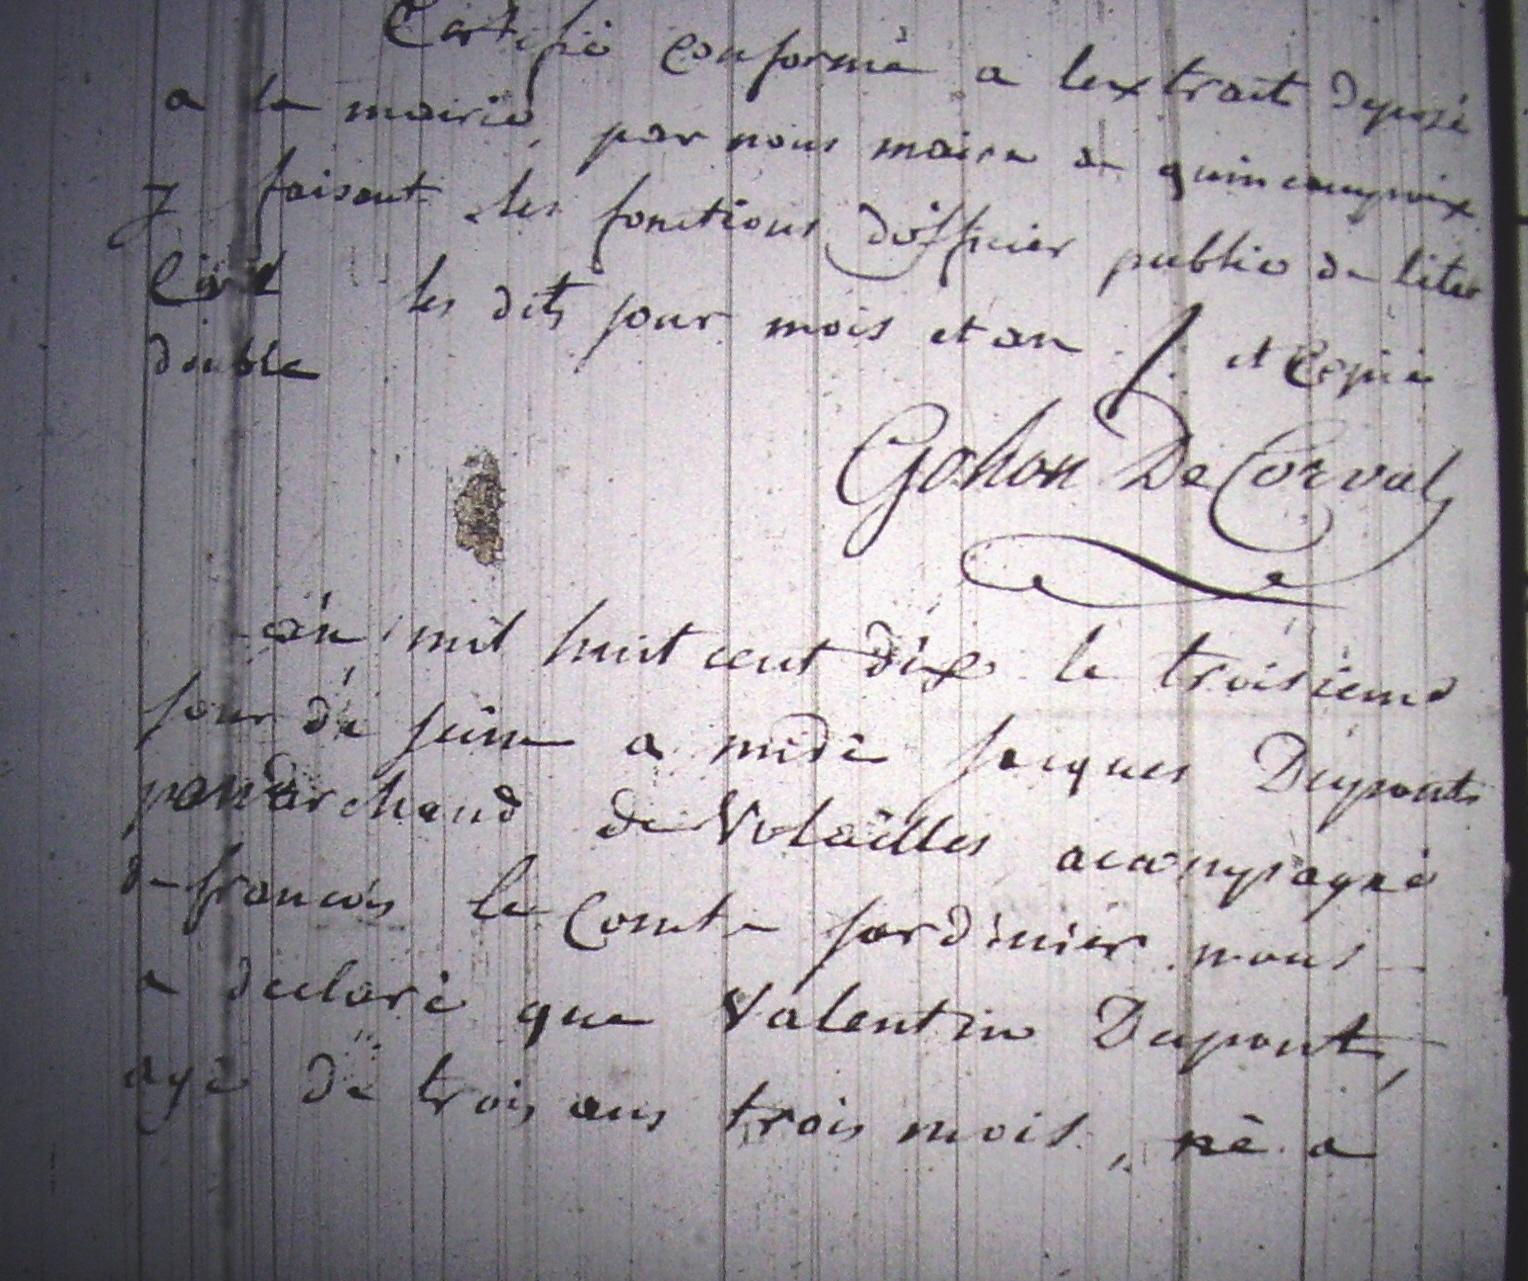 Certifié conformé a lextrait deposé
a la mairie, par nous maire de quincampoix
y faisant les fonctions dofficier public de létat
Civil les dits jour mois et an et Copie
double
Gohon De Corval
an mil huit cent dix le troisieme
jour de juin a midi jacques Dupont
marchand de Volailles acampagné
de francois le Comte jardinier nous
a declaré que Valentin Dupont,
agé de trois ans trois mois, né a